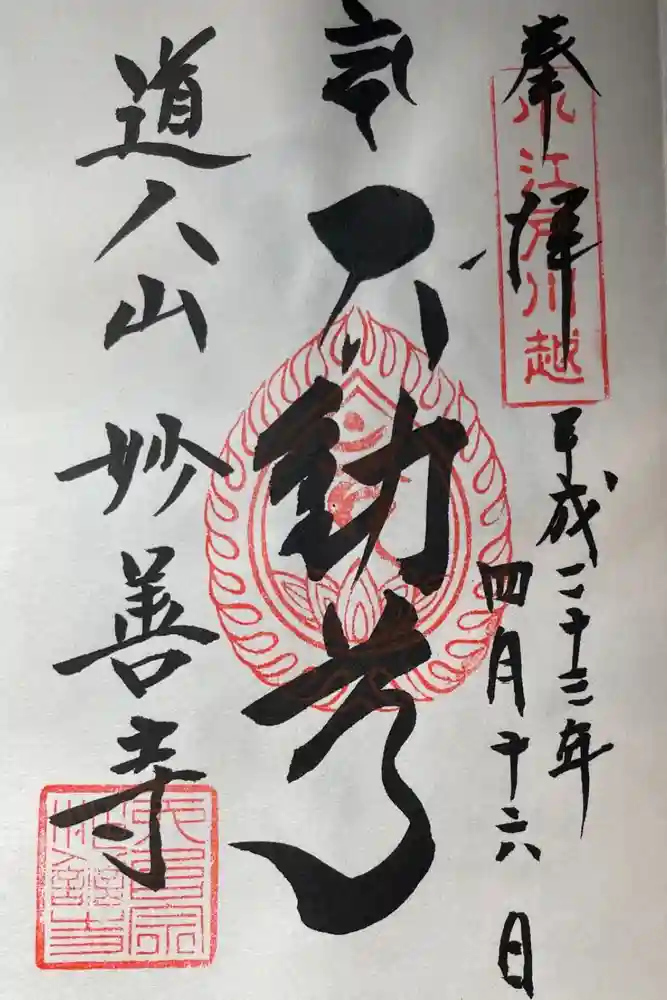 奉拝
小江戸川越
平成二十三年
四月十六日
不動尊
道人山妙善寺